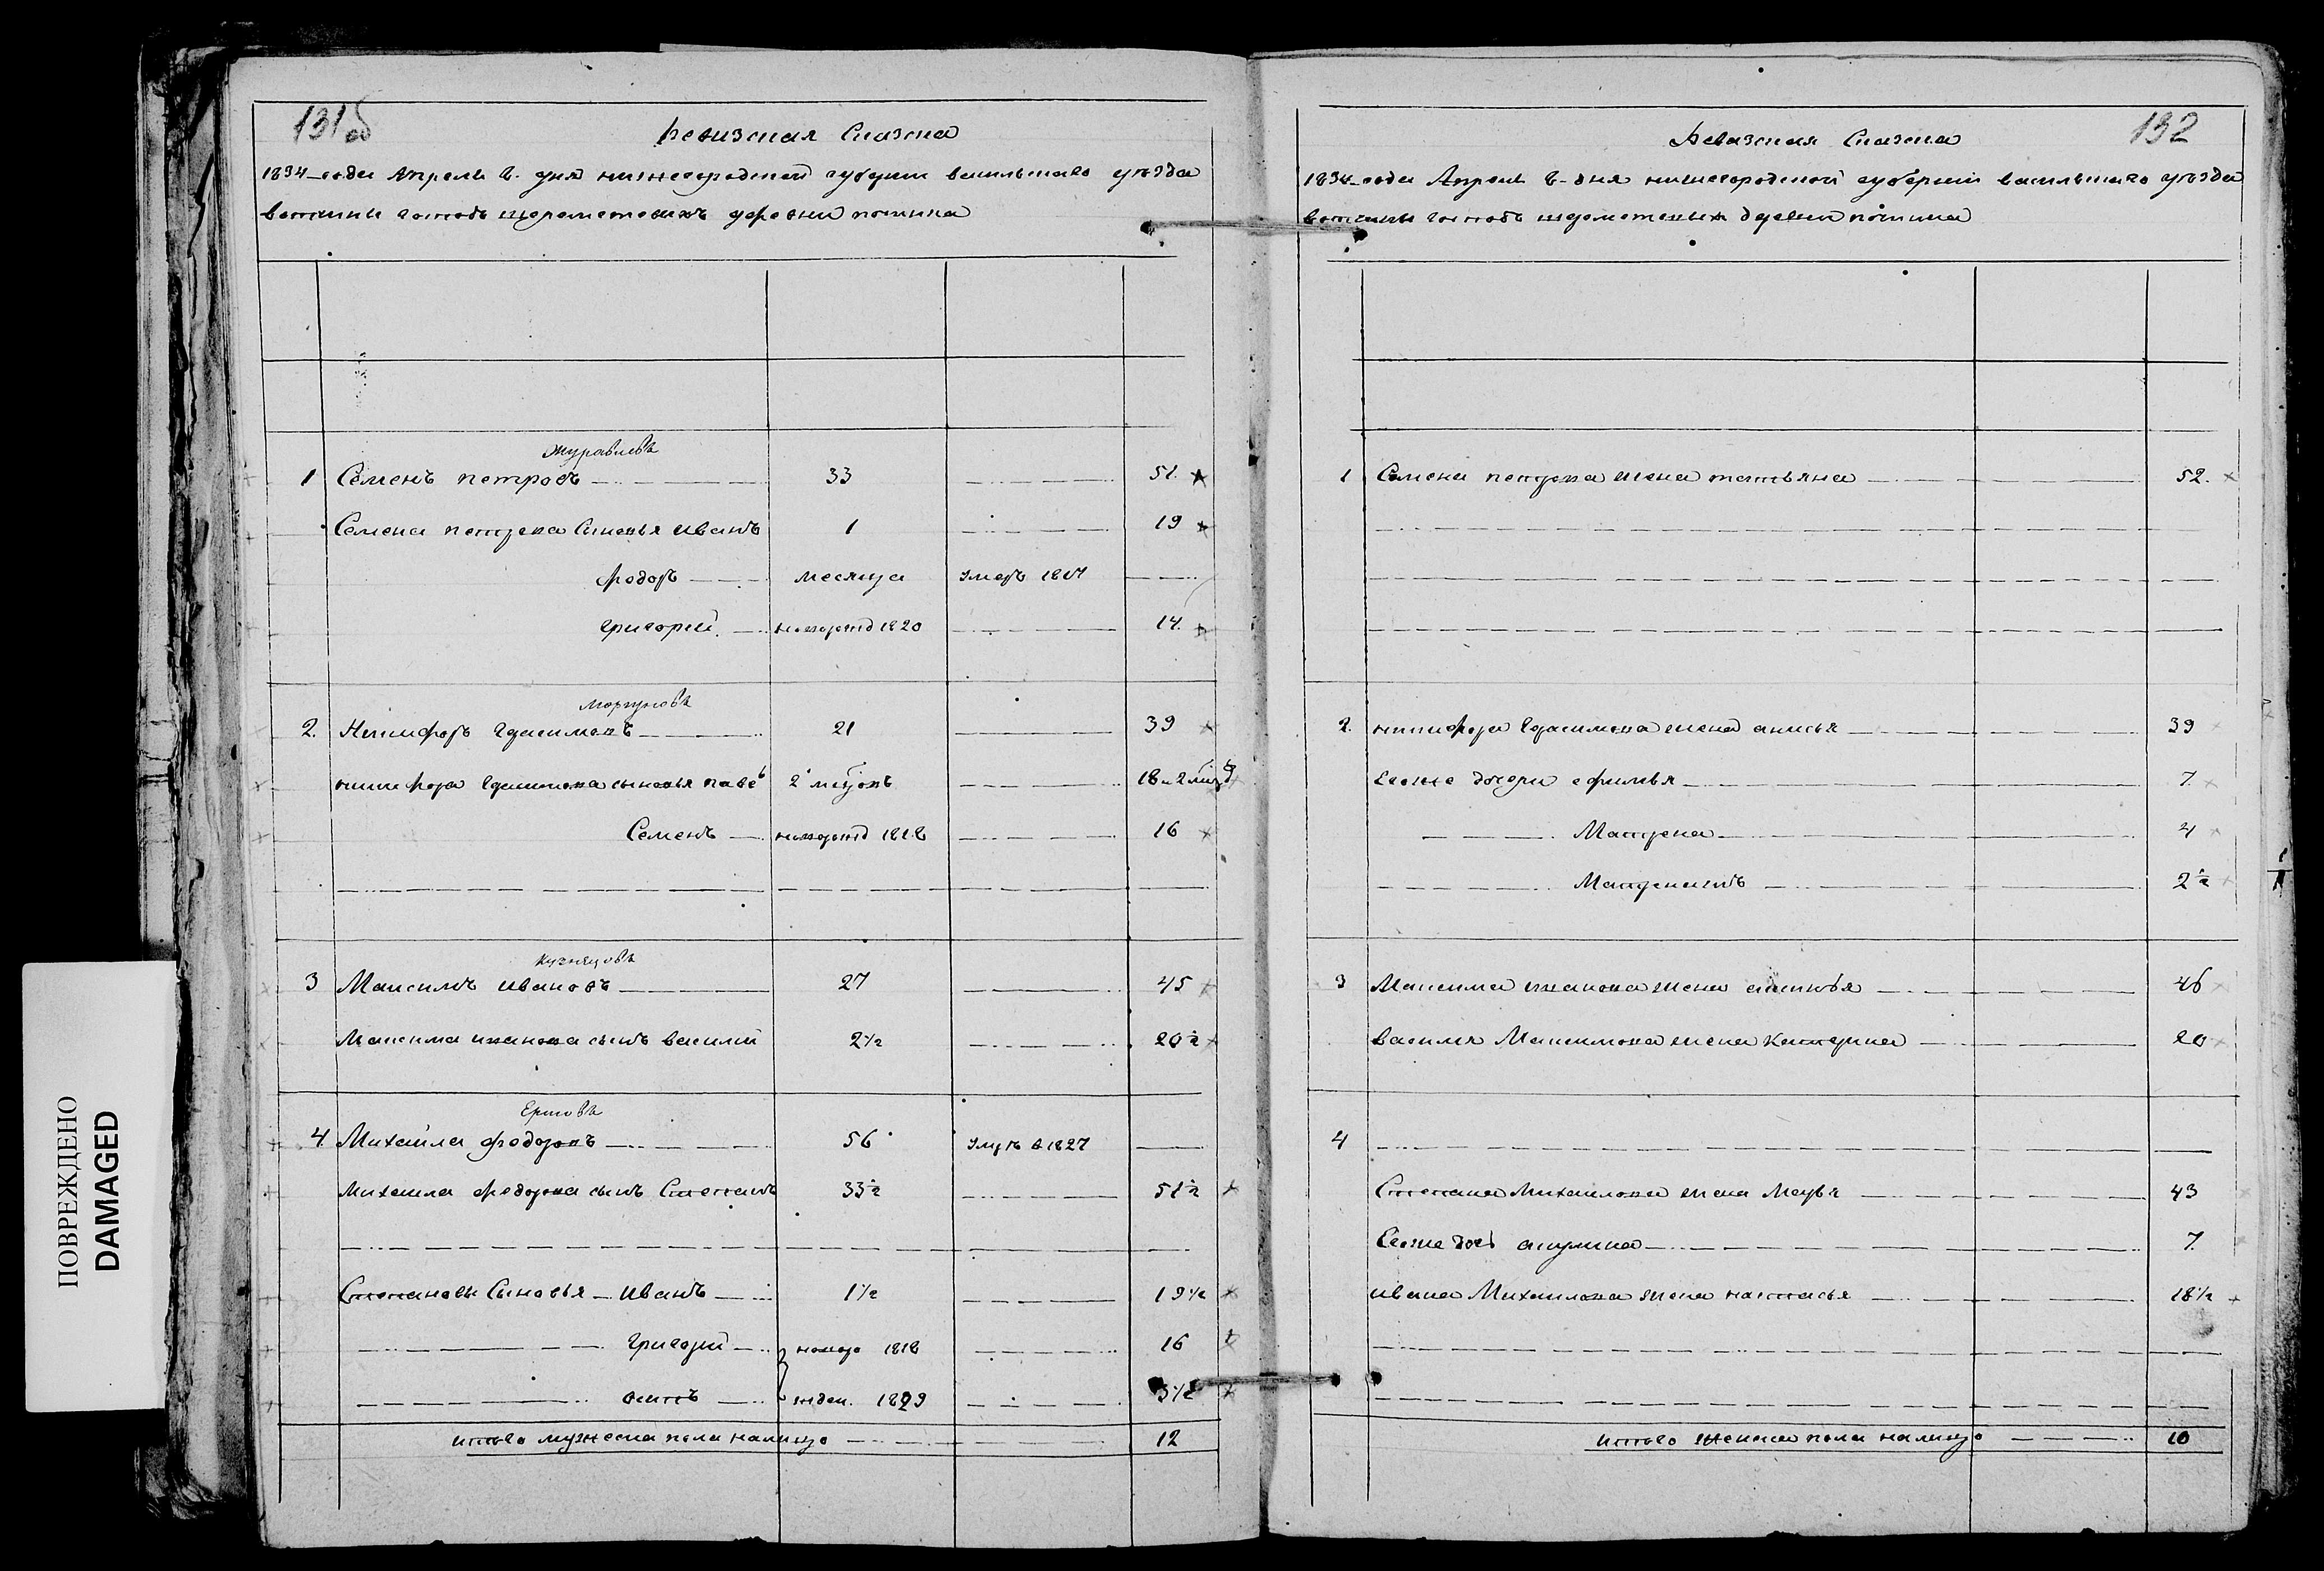 131 об
Ревизская Сказка
1834 года Апреля 8 дня нижегородской губернии васильскаго уезда
вотчины господъ шереметевыхъ деревни
Журавлевъ
1 Семенъ петровъ 33 51
Семена петрова Сыновья иванъ 1 19
фодоръ месяца умеръ
григорий 1820 14
Моргуновъ
2. Никифоръ герасимовъ 21 39
никифора герасимова сыновья 18 и 2
Семенъ 1818 16
Кузнецовъ
3 Максимъ ивановъ 27 45
Максима иванова сынъ василий 2 1/2 20 1/2
Ершовъ
4 Михайла фодоровъ 56 1827
Михайла федорова сынъ Степанъ 33 1/2 51 1/2
Степановы Сыновья иванъ 1 1/2 19 1/2
григорий 1818 16
осипъ 1829
итого мужеска пола налицо 12
132
Ревизская Сказка
1834 года Апреля 8 дня нижегородской губернии васильскаго уезда
вотчины господъ шереметевыхъ деревни
1 Семена петрова жена татьяна 52
2 никифора герасимова жена анисья 39
Евоже дочери ефимья 7
Матрена 4
2 1/2
3 Максима иванова жена 46
василия Максимова жена Катерина 20
4
Степана Михайлова жена Мавра 43
Евоже дочь акулина 7
ивана Михайлова жена настасья 18 1/2
итого женска пола налицо 10
ПОВРЕЖДЕНО
DAMAGED